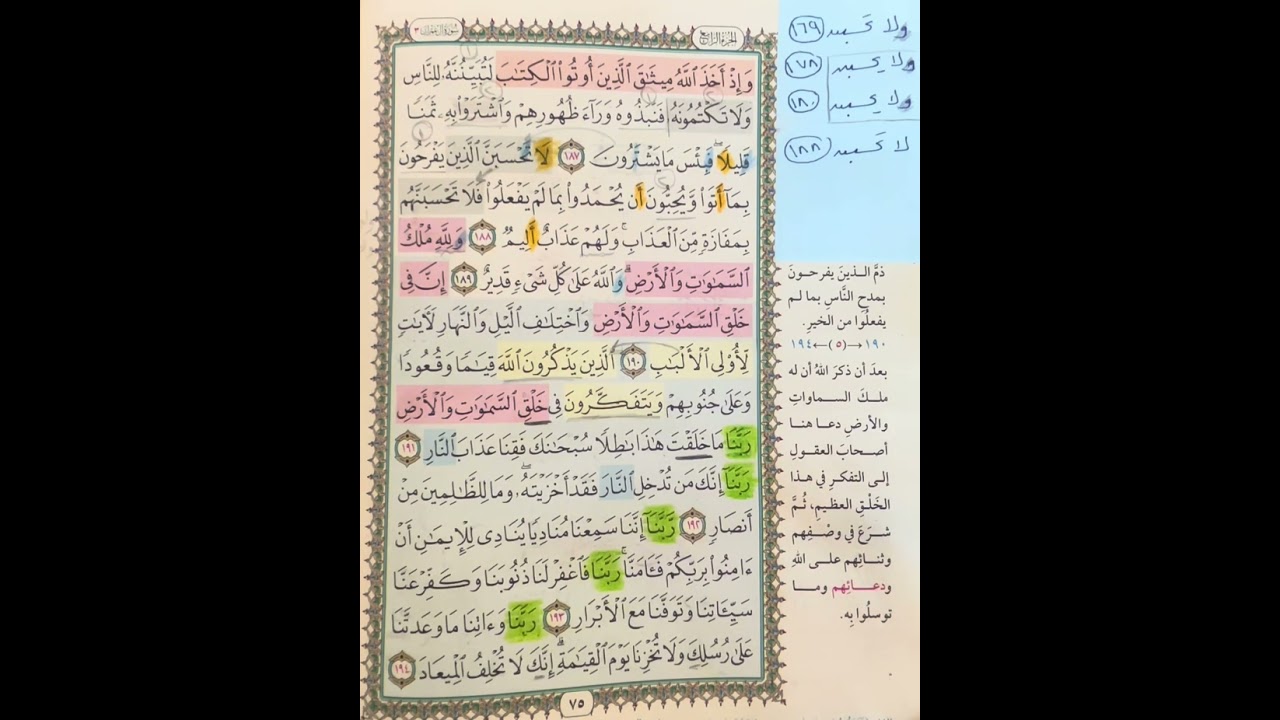 الجزء الرابع
سورة آل عمران ٣
وَإِذْ أَخَذَ ٱللَّهُ مِيثَٰقَ ٱلَّذِينَ أُوتُوا۟ ٱلْكِتَٰبَ لَتُبَيِّنُنَّهُۥ لِلنَّاسِ
وَلَا تَكْتُمُونَهُۥ فَنَبَذُوهُ وَرَآءَ ظُهُورِهِمْ وَٱشْتَرَوْا۟ بِهِۦ ثَمَنًا
قَلِيلًا ۖ فَبِئْسَ مَا يَشْتَرُونَ ١٨٧ لَا تَحْسَبَنَّ ٱلَّذِينَ يَفْرَحُونَ
بِمَآ أَتَوا۟ وَّيُحِبُّونَ أَن يُحْمَدُوا۟ بِمَا لَمْ يَفْعَلُوا۟ فَلَا تَحْسَبَنَّهُم
بِمَفَازَةٍ مِّنَ ٱلْعَذَابِ ۖ وَلَهُمْ عَذَابٌ أَلِيمٌ ١٨٨ وَلِلَّهِ مُلْكُ
ٱلسَّمَٰوَٰتِ وَٱلْأَرْضِ ۗ وَٱللَّهُ عَلَىٰ كُلِّ شَىْءٍ قَدِيرٌ ١٨٩ إِنَّ فِى
خَلْقِ ٱلسَّمَٰوَٰتِ وَٱلْأَرْضِ وَٱخْتِلَٰفِ ٱلَّيْلِ وَٱلنَّهَارِ لَءَايَٰتٍ
لِّأُو۟لِى ٱلْأَلْبَٰبِ ١٩٠ ٱلَّذِينَ يَذْكُرُونَ ٱللَّهَ قِيَٰمًا وَقُعُودًا
وَعَلَىٰ جُنُوبِهِمْ وَيَتَفَكَّرُونَ فِى خَلْقِ ٱلسَّمَٰوَٰتِ وَٱلْأَرْضِ
رَبَّنَا مَا خَلَقْتَ هَٰذَا بَٰطِلًا سُبْحَٰنَكَ فَقِنَا عَذَابَ ٱلنَّارِ ١٩١
رَبَّنَآ إِنَّكَ مَن تُدْخِلِ ٱلنَّارَ فَقَدْ أَخْزَيْتَهُۥ ۖ وَمَا لِلظَّٰلِمِينَ مِنْ
أَنصَارٍ ١٩٢ رَّبَّنَآ إِنَّنَا سَمِعْنَا مُنَادِيًا يُنَادِى لِلْإِيمَٰنِ أَنْ
ءَامِنُوا۟ بِرَبِّكُمْ فَـَٔامَنَّا ۚ رَبَّنَا فَٱغْفِرْ لَنَا ذُنُوبَنَا وَكَفِّرْ عَنَّا
سَيِّـَٔاتِنَا وَتَوَفَّنَا مَعَ ٱلْأَبْرَارِ ١٩٣ رَبَّنَا وَءَاتِنَا مَا وَعَدتَّنَا
عَلَىٰ رُسُلِكَ وَلَا تُخْزِنَا يَوْمَ ٱلْقِيَٰمَةِ ۗ إِنَّكَ لَا تُخْلِفُ ٱلْمِيعَادَ ١٩٤
٧٥
ولا تحسبن ١٦٩
ولا يحسبن ١٧٨
ولا يحسبن ١٨٠
لا تحسبن ١٨٨
ذمُّ الذينَ يفرحونَ
بمدحِ النَّاسِ بما لم
يفعلُوا من الخيرِ.
١٩٠→(٥)←١٩٤
بعدَ أن ذكرَ اللهُ أن له
ملكَ السماواتِ
والأرضِ دعا هنا
أصحابَ العقولِ
إلى التفكرِ في هذا
الخَلْقِ العظيمِ، ثُمَّ
شرَعَ في وصْفِهم
وثنائِهم على اللهِ
ودعائِهم وما
توسلُوا بِه.